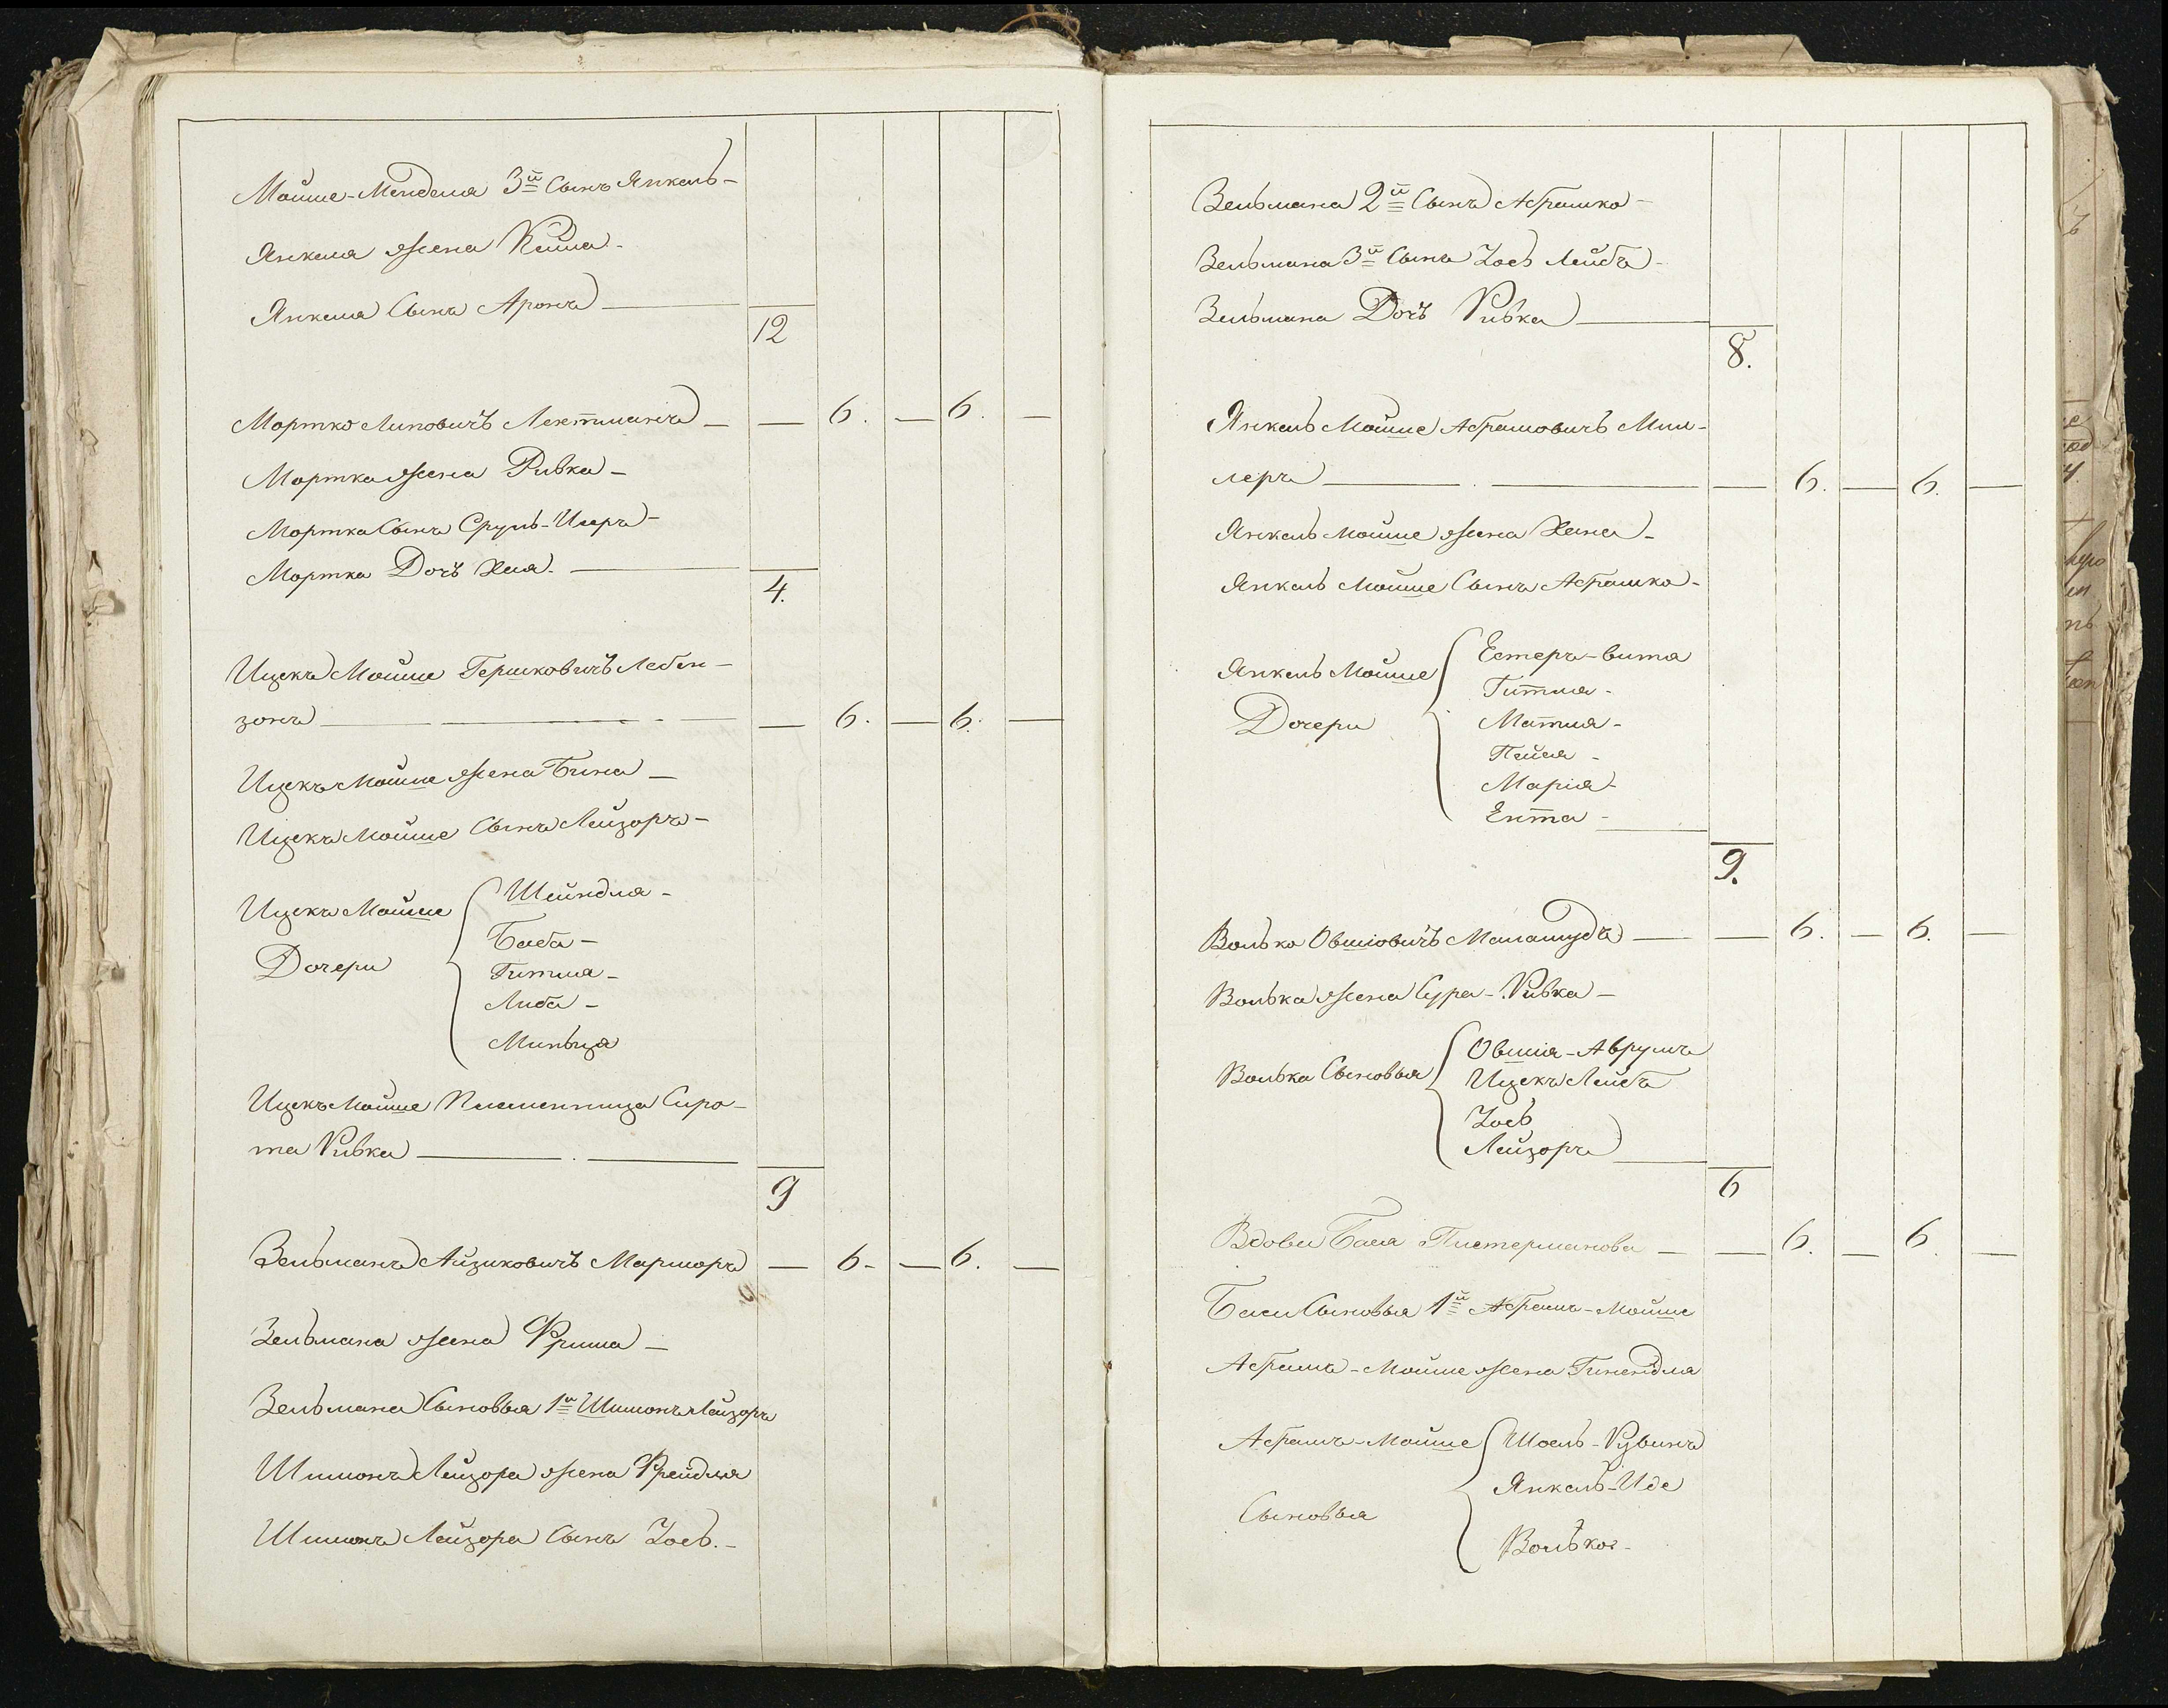 Мойше-Менделя 3й Сынъ Янкель-
Янкеля жена Кейла-
Янкеля Сынъ Аронъ
12
Мортко Липовичъ Лентманъ — — 6. — 6. —
Мортка жена Ривка-
Мортка Сынъ Сруль-Исеръ-
Мортка Дочь Хая-
4.
Ицекъ Мойше Гершковичъ Лебен-
зонъ — 6. — 6. —
Ицекъ Мойше жена Бина-
Ицекъ Мойше Сынъ Лейзоръ-
Ицекъ Мойше
Дочери
Шейндля-
Баба-
Гитля-
Либа-
Миньця
Ицекъ Мойше Племенница Сиро-
та Ривка
9
Зельманъ Айзиковичъ Марморъ — 6- — 6. —
Зельмана жена Фрима-
Зельмана Сыновья 1й Шимонъ Лейзоръ
Шимонъ Лейзора жена Фрейдля
Шимонъ Лейзора Сынъ Іосъ.-
Зельмана 2й Сынъ Абрамко-
Зельмана 3й Сынъ Іосъ Лейбъ-
Зельмана Дочь Ривка
8.
Янкель Мойше Абрамовичъ Мил-
леръ — 6. — 6. —
Янкель Мойше жена Хана-
Янкель Мойше Сынъ Абрамко-
Янкель Мойше
Дочери
Естеръ-вита
Гитля-
Матля-
Пейся-
Марія-
Ента-
9.
Волько Овшіовичъ — 6. — 6. —
Волька жена Сура-Ривка-
Волька Сыновья
Овшія-Аврумъ
Ицекъ Лейбъ
Іосъ
Лейзоръ
6
Вдова Бася Пистерманова — — 6. — 6. —
Баси Сыновья 1й Абрамъ-Мойше
Абрамъ-Мойше жена Гинендля
Абрамъ-Мойше
Сыновья
Шоель-Рувинъ
Янкель-Иде
Волько-